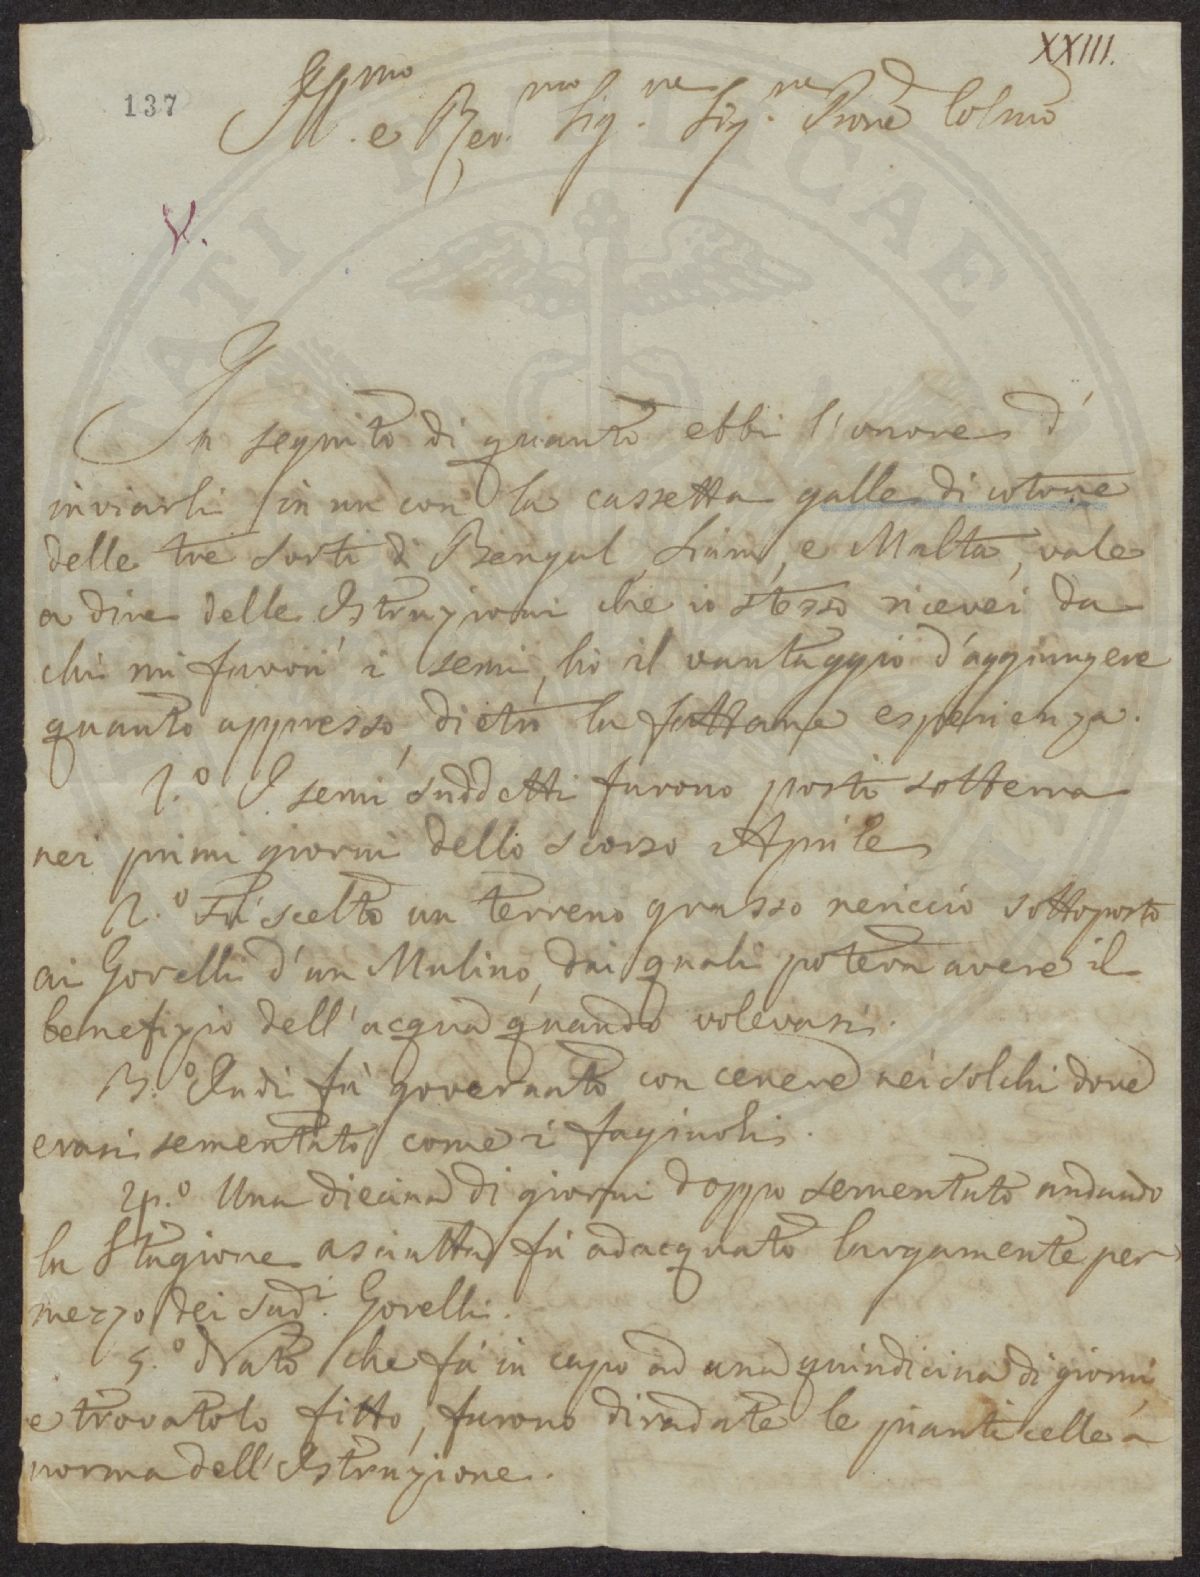 XXIII.
137
Ill.mo e Rev.mo Sig.re Sig.re Prone Colmo
V.
In seguito di quanto ebbi l'onore d'
inviarli in un con la cassetta galle di cotone
delle tre sorti di Bengal, Siam, e Malta, vale
a dire delle Istruzioni che io stesso ricevei da
chi mi favorì i semi, ho il vantaggio d'aggiungere
quanto appresso, dietro la fattane esperienza.
1.o I semi suddetti furono posti sotterra
nei primi giorni dello scorso Aprile
2.o Fu scelto un terreno grasso nericcio sottoposto
ai Gorelli d'un Mulino, dai quali poteva avere il
benefizio dell'acqua quando volevasi.
3.o Indi fù governato con cenere nei solchi dove
erasi sementato come i faginoli.
4.o Una diecina di giorni doppo sementato andando
la Stagione asciutta fù adacquato largamente per
mezzo dei sud.i Gorelli.
5.o Nato che fù in capo ad una quindicina di giorni,
e trovatolo fitto, furono diradate le pianticelle a
norma dell'Istruzione.